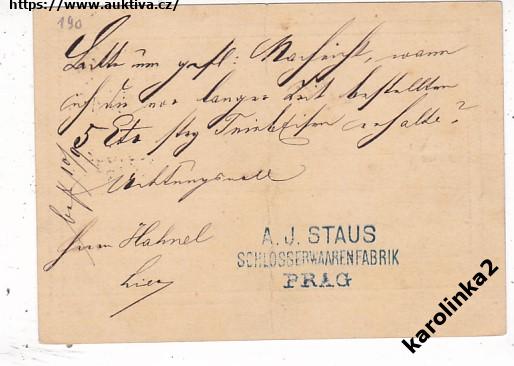 https://www.auktiva.cz/
190
Bitte um gefl: Nachricht, wann
ich die vor langer Zeit bestellten
5 Cto Stg erhalte?
Achtungsvoll
Herrn Hahnel
hier
A. J. STAUS
SCHLOSSERWAARENFABRIK
PRAG
karolinka2